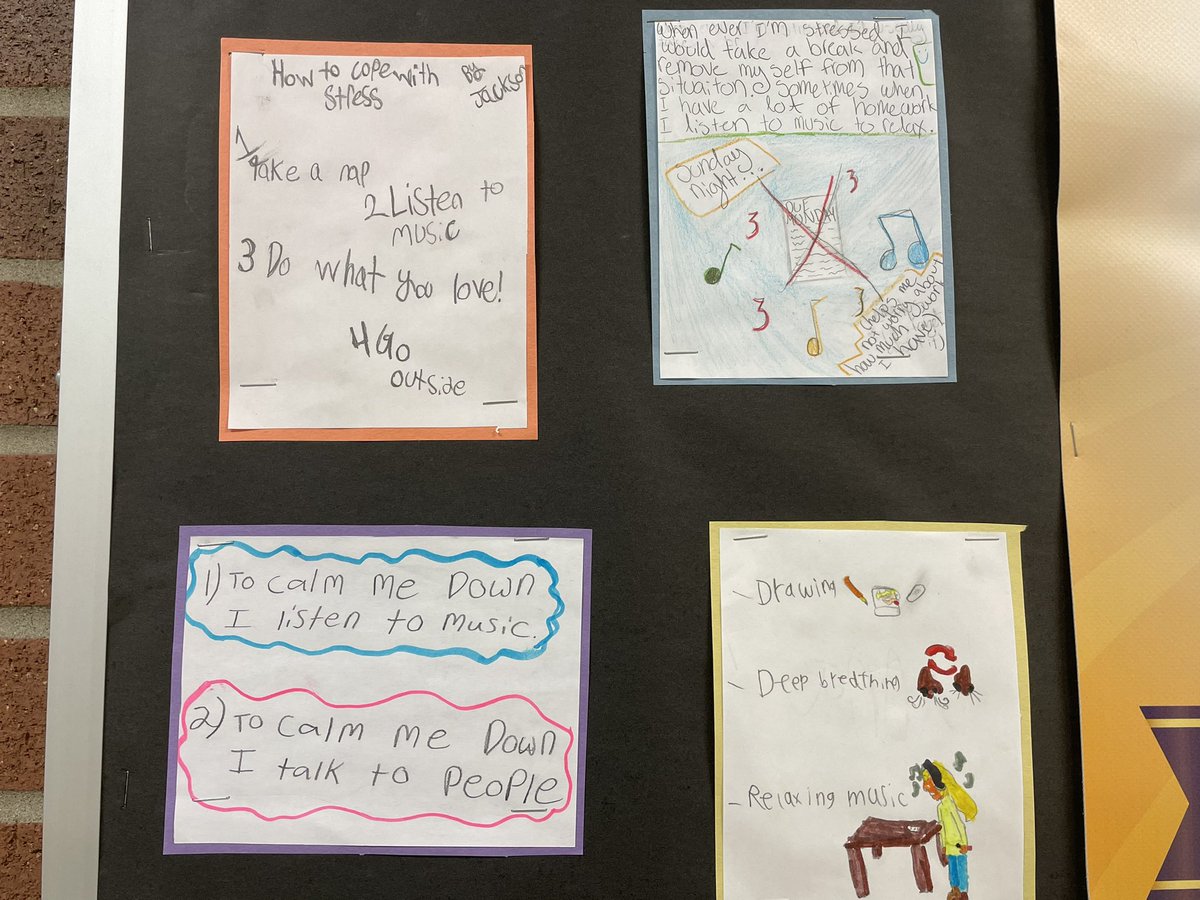 How to cope with
stress
By
Jackson
1 Take a nap
2 Listen to
music
3 Do what you love!
4 Go
outside
When ever I'm stressed I
would take a break and
remove my self from that
situaiton. Sometimes when
I have a lot of homework
I listen to music to relax.
Sunday
night...
DUE
MONDAY
3
3
3
3
(helps me
not worry about
how much work
I have)
1) To calm me Down
I listen to music.
2) To calm me Down
I talk to People
- Drawing
- Deep breathing
- Relaxing music